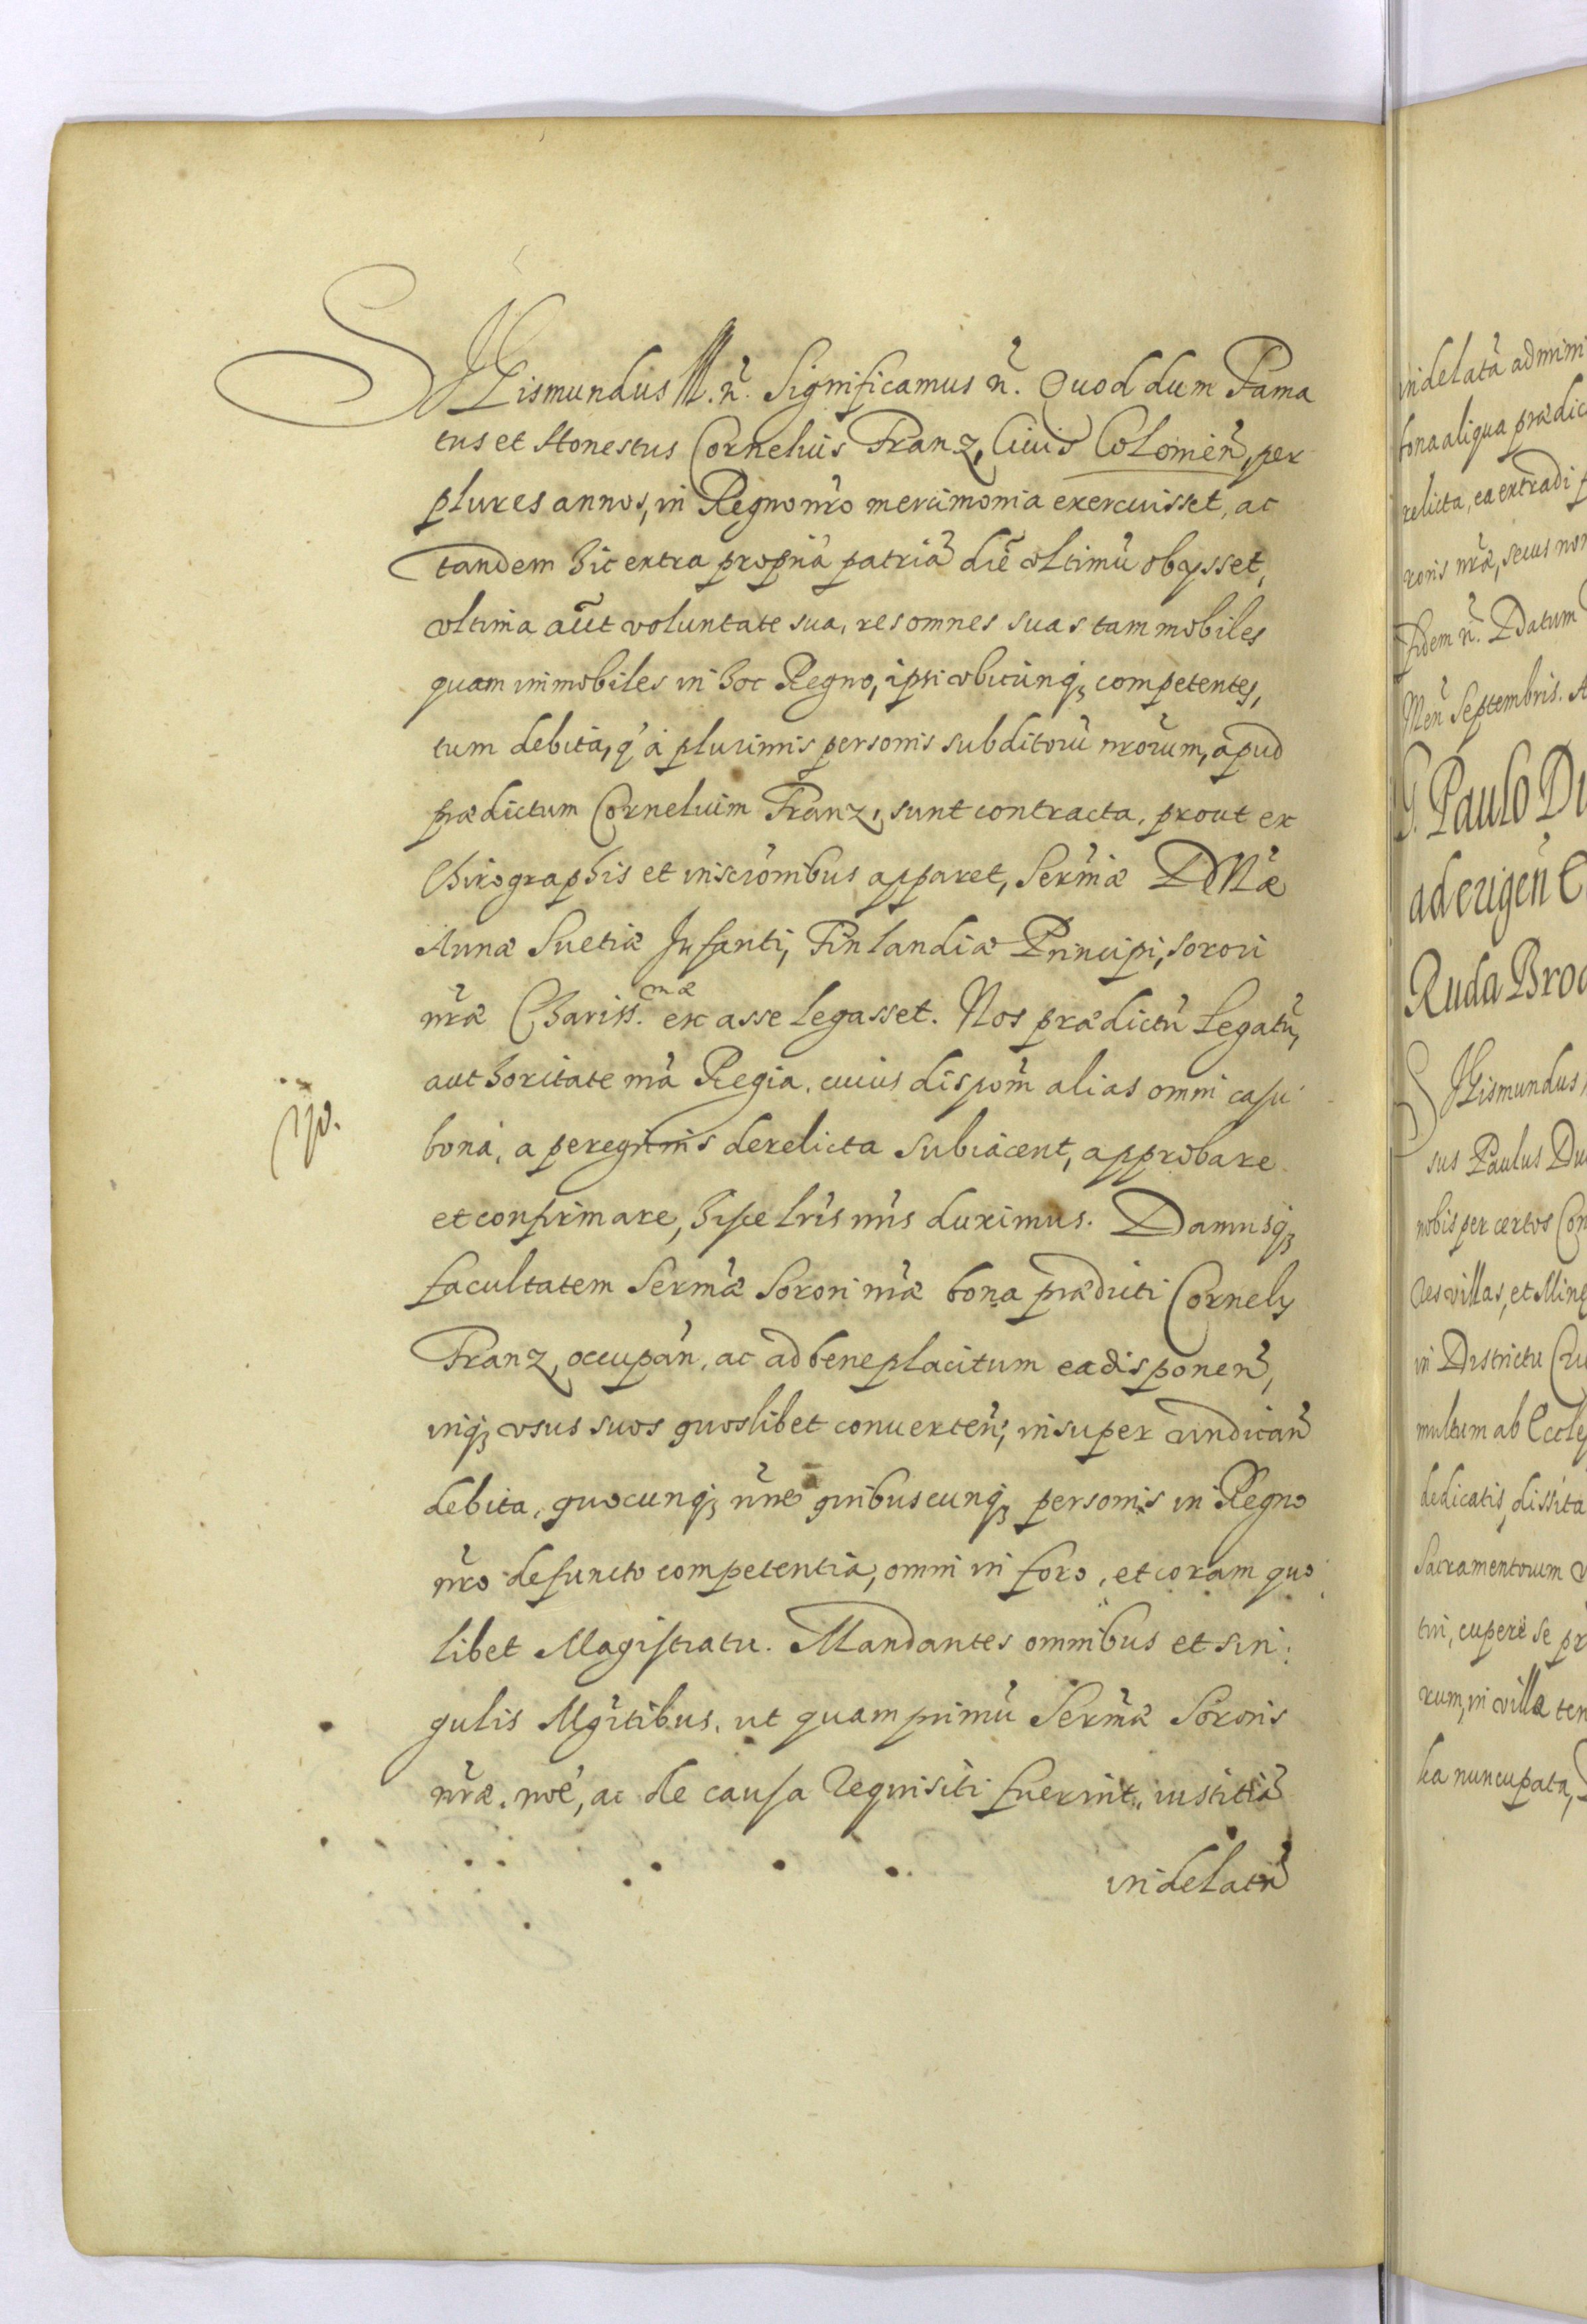 SIGismundus III. n̄. Significamus n̄. Quod dum Fama
tus et Honestus Cornelius Franz, Ciuis Colonień, per
plures annos, in Regno nr̃o mercimonia exercuisset, ac
tandem hic extra propriã patriã diẽ vltimũ obijsset,
vltima aũt voluntate sua, res omnes suas tam mobiles
quam immobiles in hoc Regno, ipsi vbicunq; competentes,
tum debita, q̃ à plurimis personis subditorũ nr̃orum, apud
prædictum Cornelium Franz, sunt contracta, prout ex
Chirographis et inscr̃onibus apparet, Serm̃æ DNæ
Annæ Suetiæ Infanti, Finlandiæ Principi, sorori
nr̃æ Chariss.mæ ex asse legasset. Nos prædictũ Legatũ,
authoritate nr̃a Regia, cuius dispoñi alias omni casu
bona, a peregrinis derelicta subiacent, approbare
et confirmare, hisce lr̃is nr̃is duximus. Damusq;
facultatem Serm̃æ Sorori nr̃æ bona prædicti Cornelij
Franz, occupañ, ac ad beneplacitum ea disponeñ,
inq; vsus suos quoslibet conuerteñ; insuper vindicañ
debita, quocunq; nõne quibuscunq; personis in Regno
nr̃o defuncto competentia, omni in foro, et coram quo
libet Magistratu. Mandantes omnibus et sin:
gulis Mgr̃tibus, ut quamprimũ Serm̃æ Sororis
nr̃æ, nõe, ac de causa requisiti fuerint, iustitiã
indelatã
ꝛpo.
indelatã admini
bona aliqua prædic
relicta, ea extradi f
roris nr̃æ, secus non
Fidem n̄. Datum
Meñ Septembris. A
G. Paulo Du
ad erigeñ E
Ruda Broc
SIGismundus
sus Paulus Du
nobis per certos Con
des villas, et Mine
in Districtu Cru
multum ab Eccle
dedicatis, dissita
Sacramentorum v
tui, cupere se pr
rum, in villa ten
ka nuncupata,